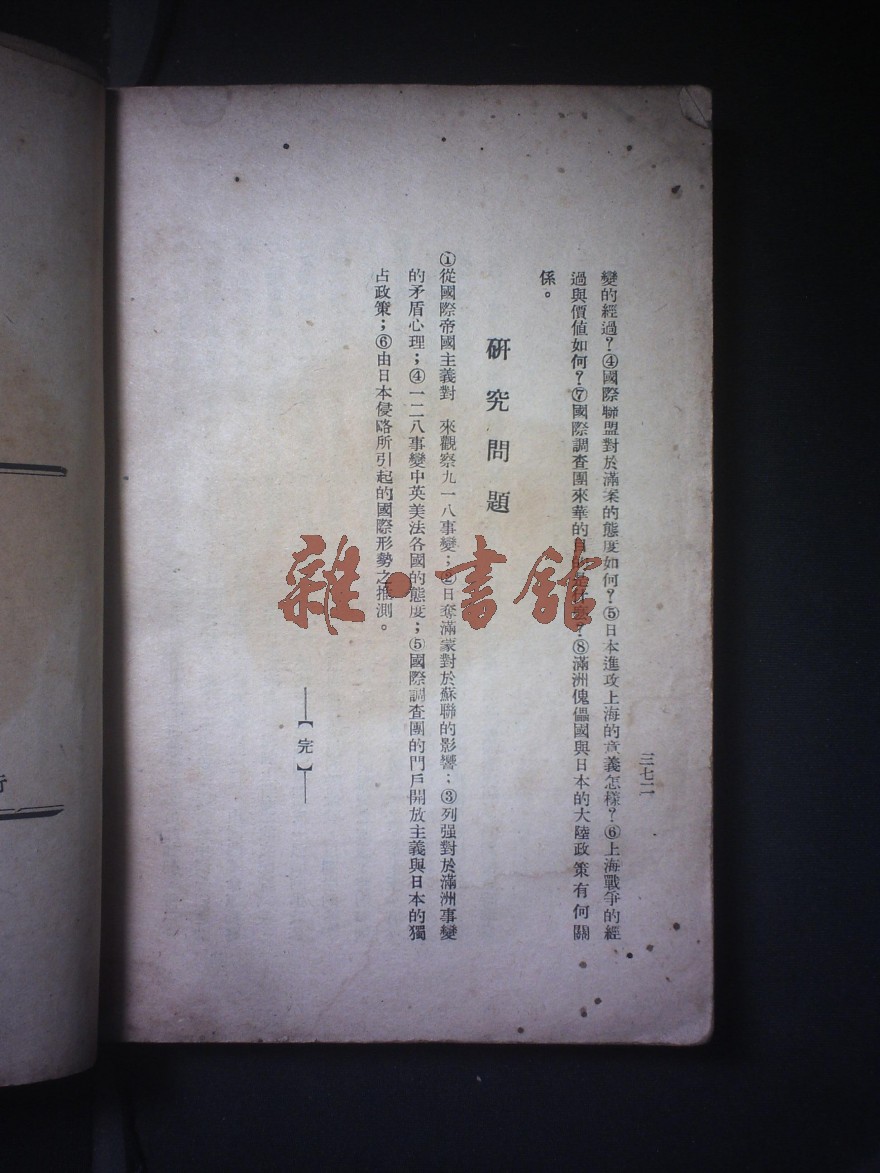 三七二
變的經過？④國際聯盟對於滿案的態度如何？⑤日本進攻上海的意義怎樣？⑥上海戰爭的經
過與價值如何？⑦國際調查團來華的目的是什麼？⑧滿洲傀儡國與日本的大陸政策有何關
係。
研究問題
①從國際帝國主義對　來觀察九一八事變；②日奪滿蒙對於蘇聯的影響；③列强對於滿洲事變
的矛盾心理；④一二八事變中英美法各國的態度；⑤國際調查團的門戶開放主義與日本的獨
占政策；⑥由日本侵略所引起的國際形勢之推測。
【完】
雜·書館
行